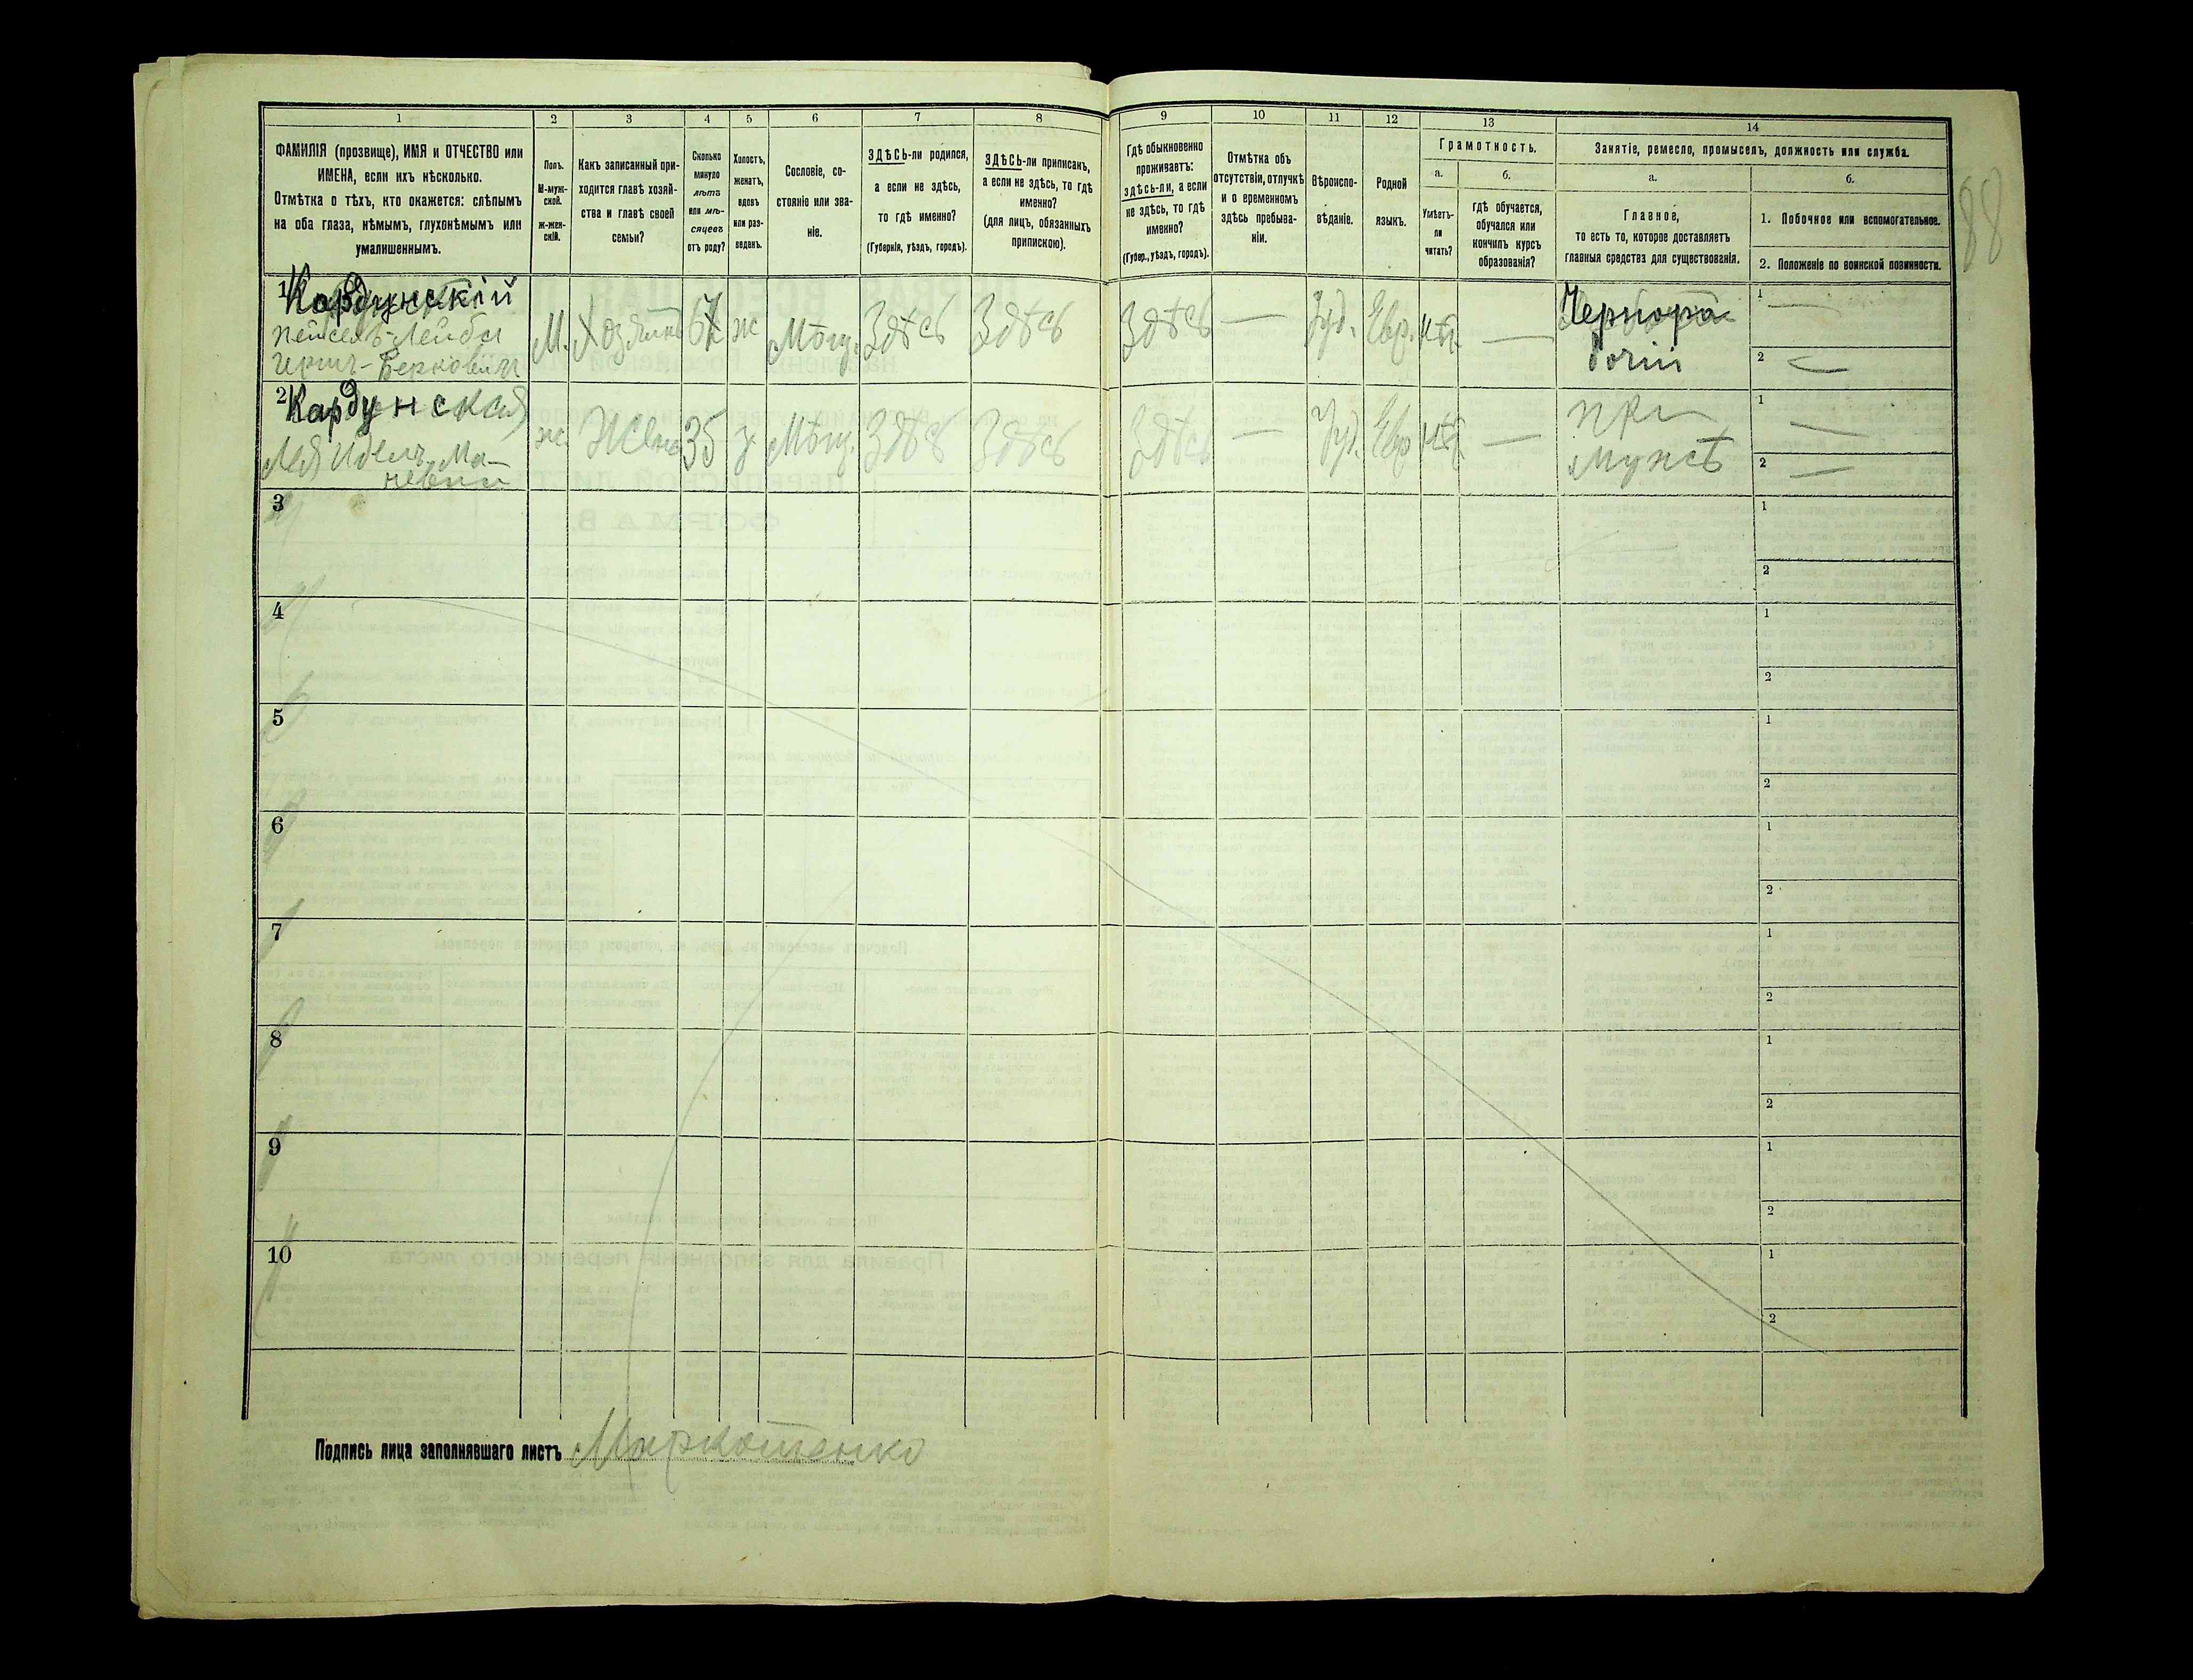 1 2 3 4 5 6 7 8 9 10 11 12 13 14
ФАМИЛІЯ (прозвище), ИМЯ и ОТЧЕСТВО или
ИМЕНА, если ихъ нѣсколько.
Отмѣтка о тѣхъ, кто окажется: слѣпымъ
на оба глаза, нѣмымъ, глухонѣмымъ или
умалишеннымъ.
Полъ.
М-муж-
ской.
ж-жен-
скій.
Какъ записанный при-
ходится главѣ хозяй-
ства и главѣ своей
семьи?
Сколько
минуло
лѣтъ
или мѣ-
сяцевъ
отъ роду?
Холостъ,
женатъ,
вдовъ
или раз-
веденъ.
Сословіе, со-
стояніе или зва-
ніе.
ЗДѢСЬ-ли родился,
а если не здѣсь,
то гдѣ именно?
(Губернія, уѣздъ, городъ).
ЗДѢСЬ-ли приписанъ,
а если не здѣсь, то гдѣ
именно?
(для лицъ, обязанныхъ
припискою).
Гдѣ обыкновенно
проживаетъ:
здѣсь-ли, а если
не здѣсь, то гдѣ
именно?
(Губер., уѣздъ, городъ).
Отмѣтка объ
отсутствіи, отлучкѣ
и о временномъ
здѣсь пребыва-
ніи.
Вѣроиспо-
вѣданіе.
Родной
языкъ.
Грамотность.
а.
Умѣетъ-
ли
читать?
б.
гдѣ обучается,
обучался или
кончилъ курсъ
образованія?
Занятіе, ремесло, промыселъ, должность или служба.
а.
Главное,
то есть то, которое доставляетъ
главныя средства для существованія.
б.
1. Побочное или вспомогательное.
2. Положеніе по воинской повинности.
88
1 Кардунскій
Пейсехъ-Лейба
Герш-Берковичъ
М. Хозяинъ ж Мѣщ. Здѣсь Здѣсь Здѣсь — Іуд. Евр. нѣт —
Чернора-
бочій
1 —
2 —
2 Кардунская
Лея Идель Ма-
ж. Жена 35 з Мѣщ. Здѣсь Здѣсь Здѣсь — Іуд. Евр нѣт —
при
мужѣ
1 —
2 —
3 1
2
4 1
2
5 1
2
6 1
2
7 1
2
8 1
2
9 1
2
10 1
2
Подпись лица заполнявшаго листъ Миркотенко